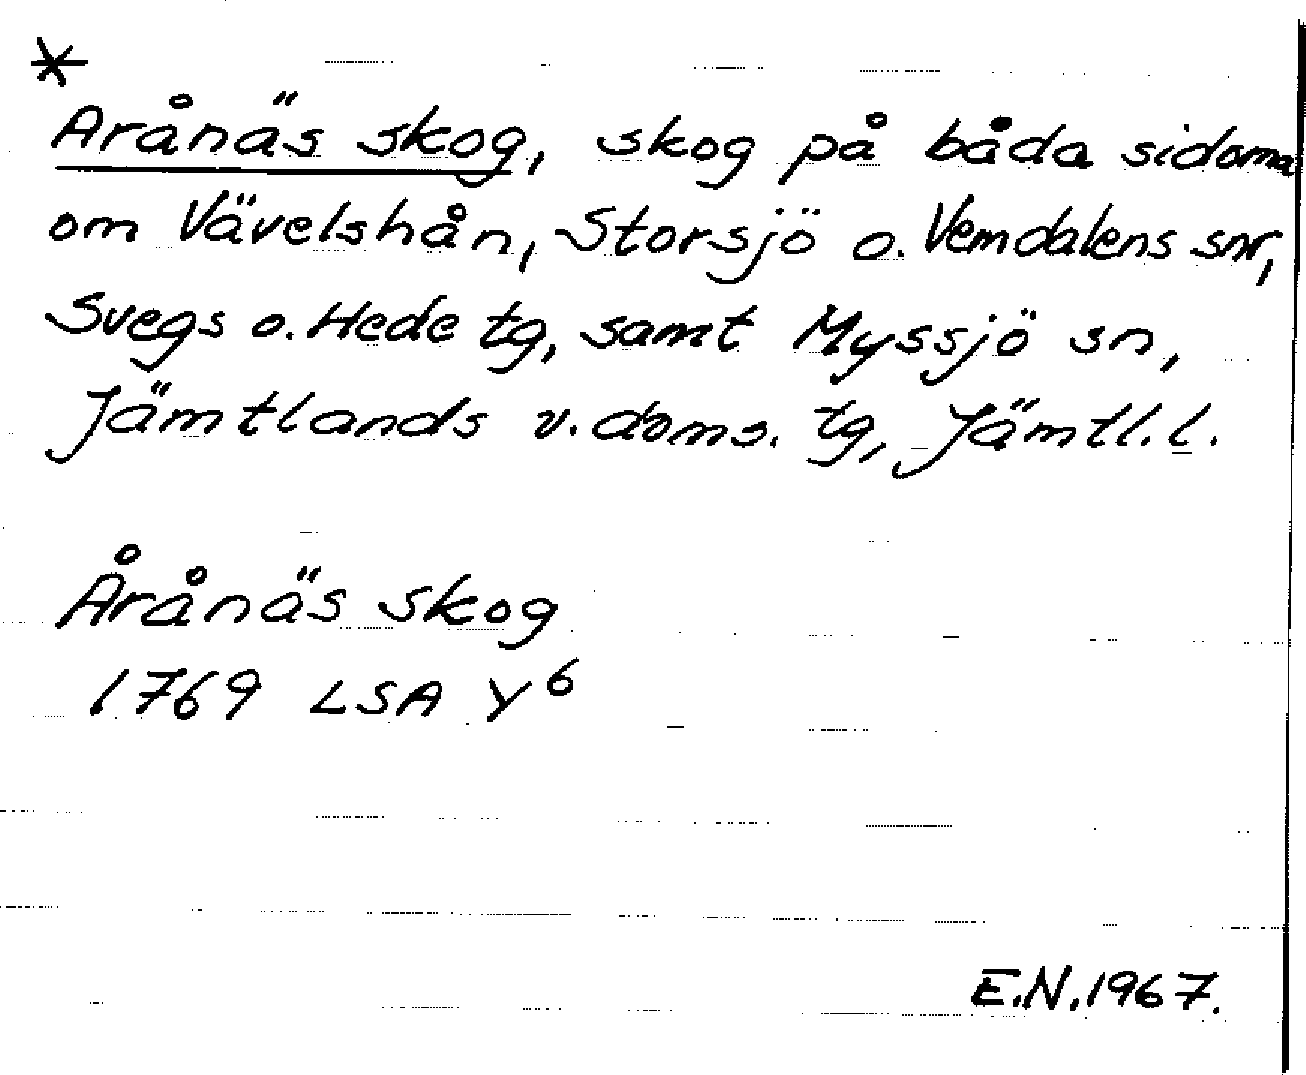 *
Arånäs skog, skog på båda sidorna
om Vävelshån, Storsjö o. Vemdalens snr,
Svegs o. Hede tg, samt Myssjö sn,
Jämtlands v. doms. tg, Jämtl. l.
Årånäs skog
1769 LSA Y⁶
E.N. 1967.